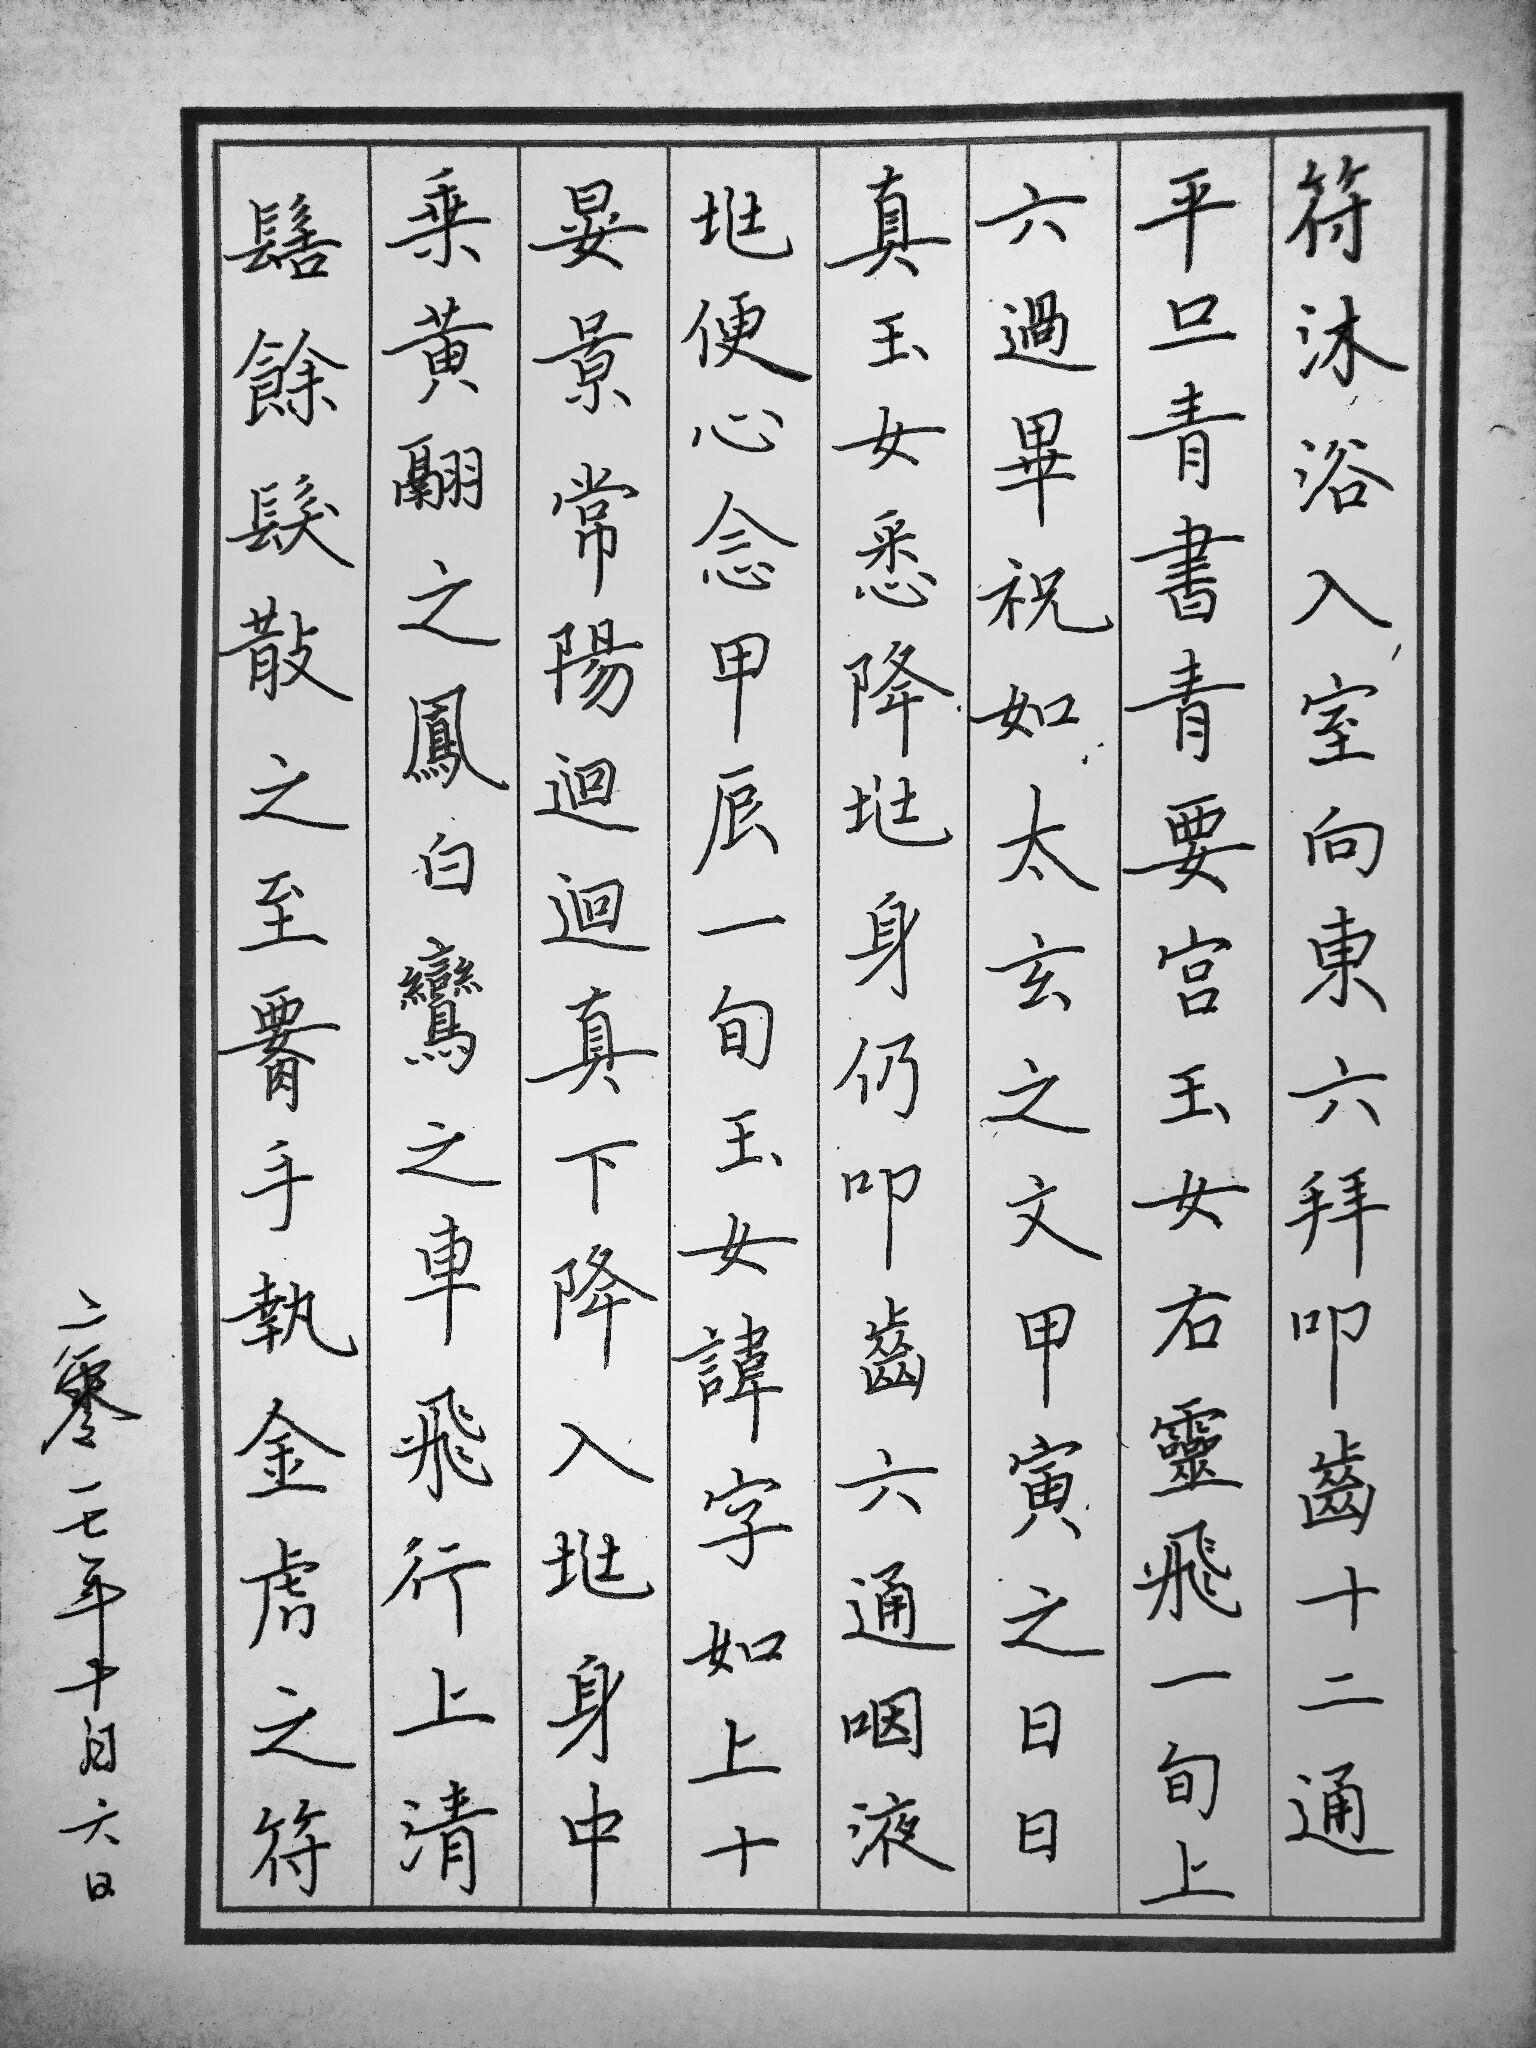 符沐浴入室向東六拜叩齒十二通
平旦青書青要宫玉女右靈飛一旬上
六過畢祝如太玄之文甲寅之日日
真玉女悉降形身仍叩齒六通咽液
形便心念甲辰一旬玉女諱字如上十
晏景常陽迴迴真下降入形身中
乗黄翮之鳳白鸞之車飛行上清
髻餘髮散之至署手執金虎之符
二零一七年十月六日